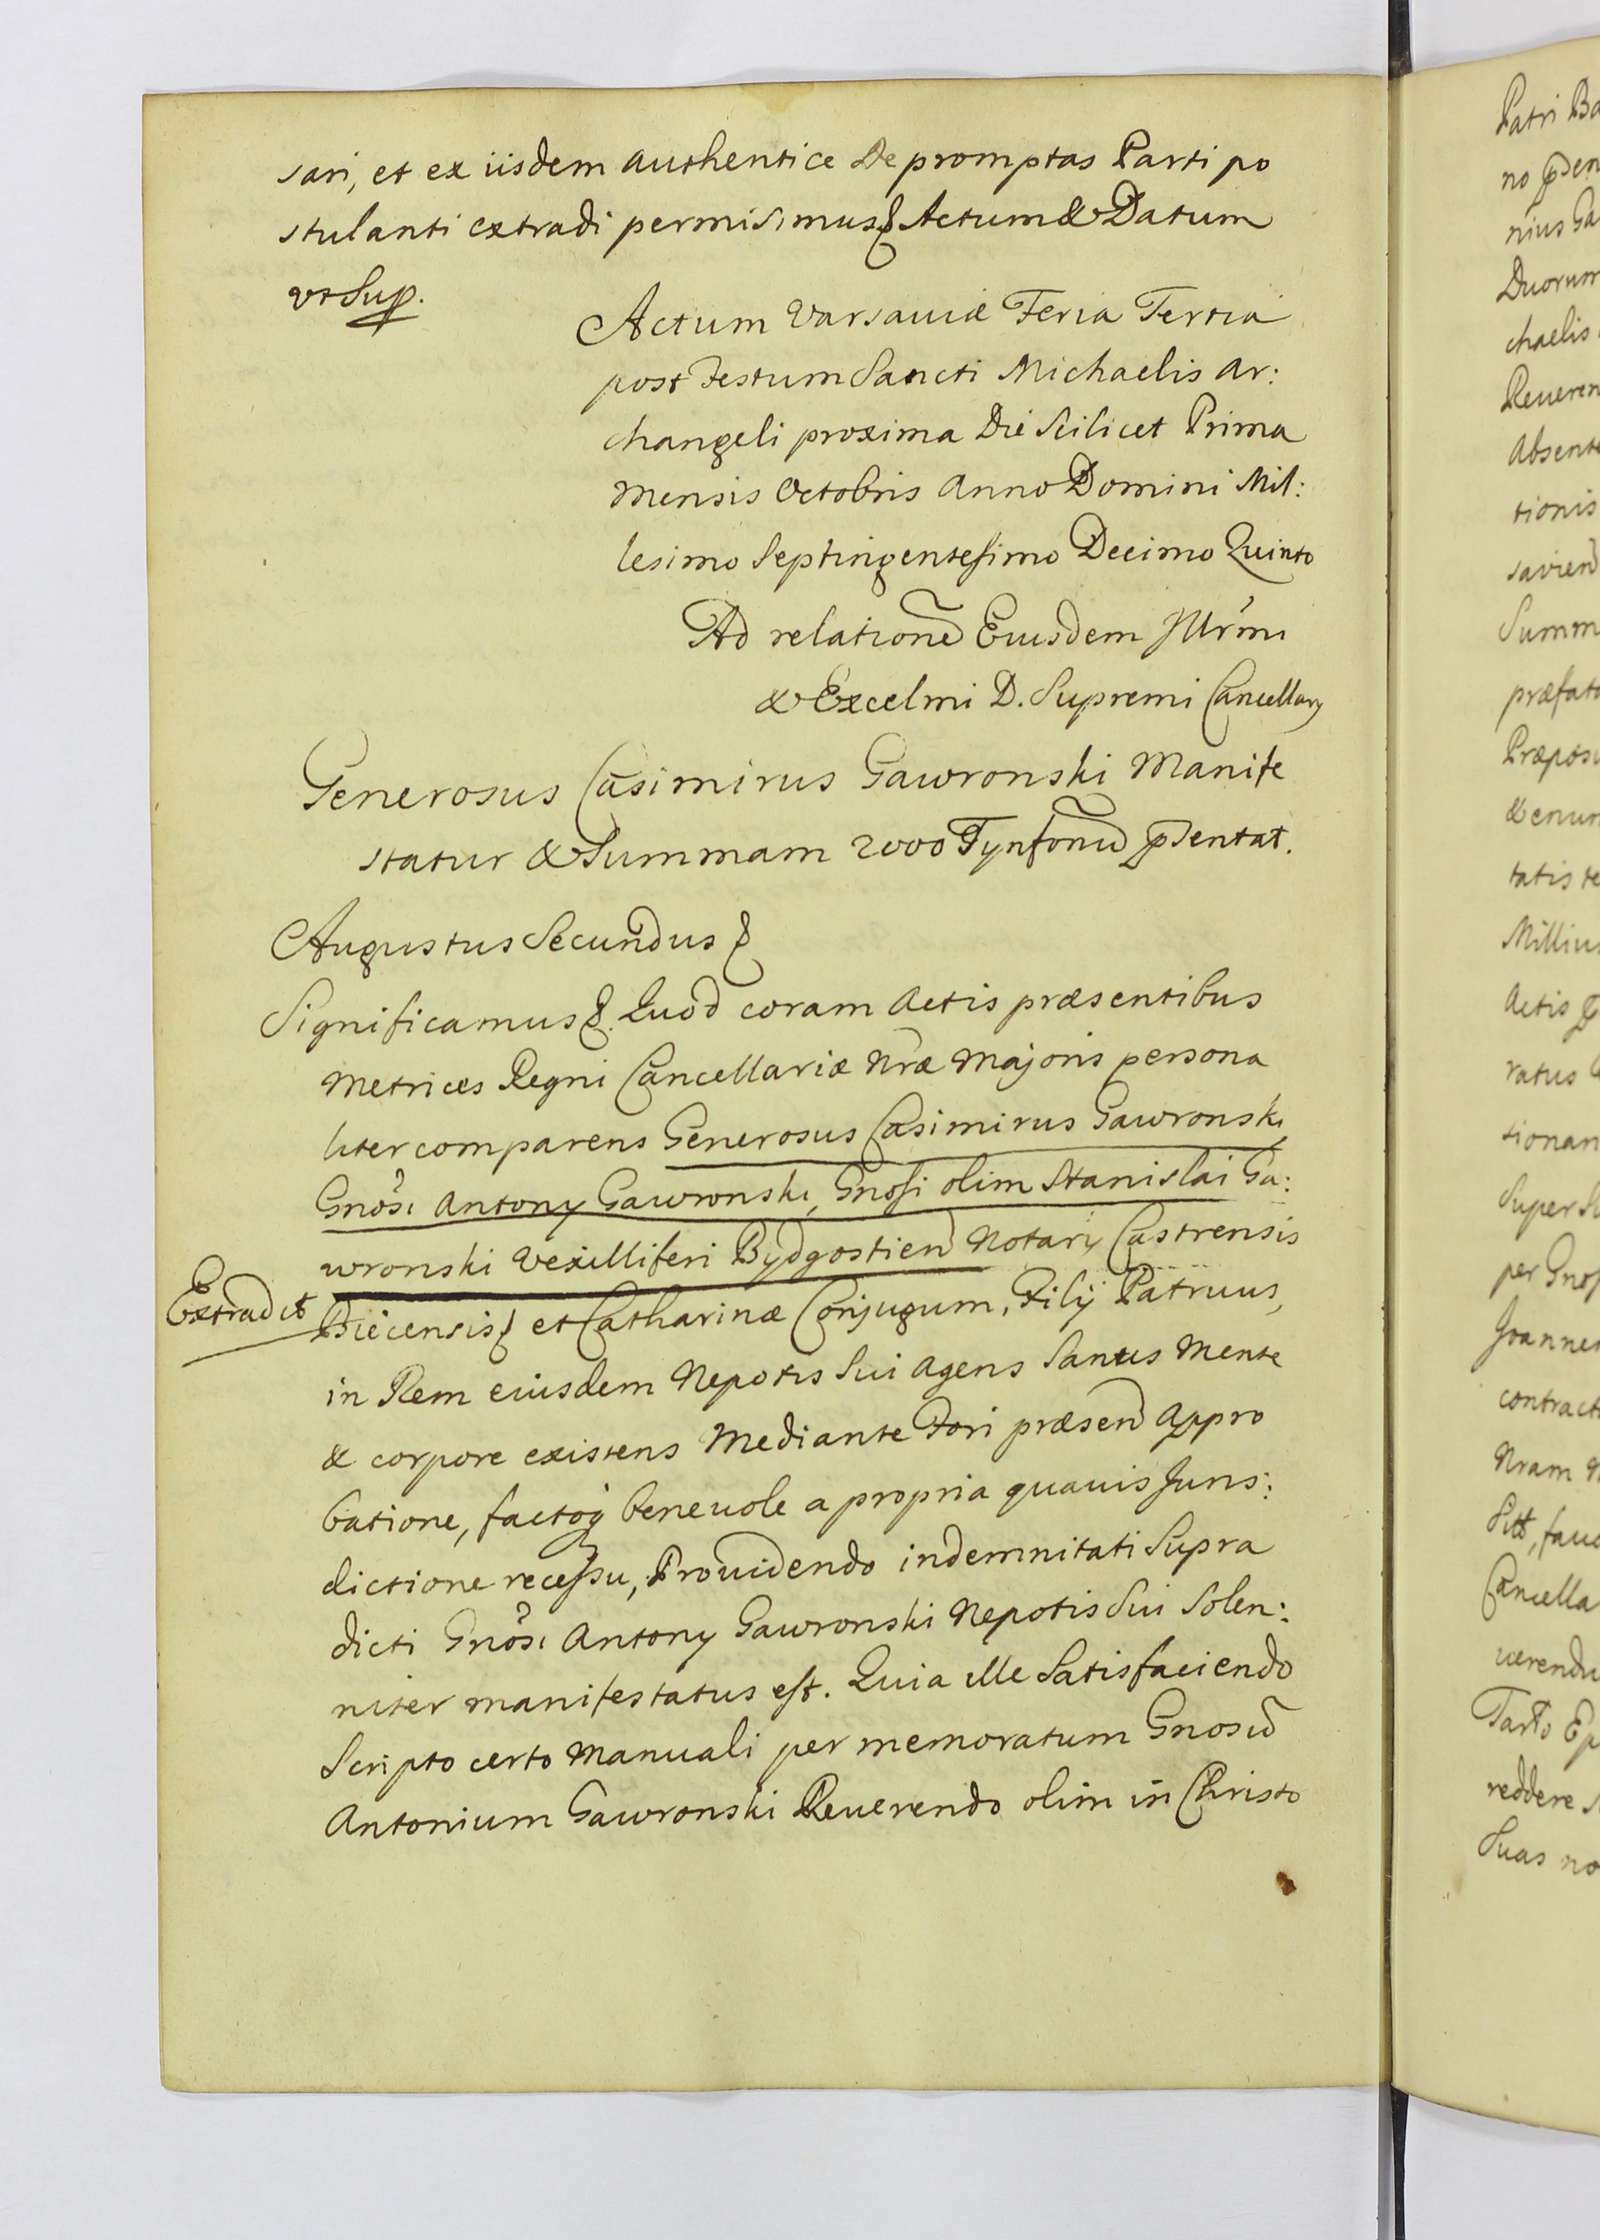 sari, et ex iisdem authentice de promptas Parti po
stulanti extradi permisimus Actum & Datum
vt Sup.
Actum Varsauiæ Feria Tertia
post Festum Sancti Michaelis Ar:
changeli proxima Die Scilicet Prima
Mensis Octobris Anno Domini Mil:
lesimo Septingentesimo Decimo Quinto
Ad relatione Eiusdem Illrmi
& Excelmi D. Supremi Cancellarÿ
Generosus Casimirus Gawronski Manife
statur & Summam 2000 Tynfonu pسentat.
Augustus Secundus
Significamus Quod coram Actis præsentibus
Metrices Regni Cancellariæ Nræ Majoris persona
liter comparens Generosus Casimirus Gawronski
Gnosi Antonÿ Gawronski, Gnosi olim Stanislai Ga:
wronski Vexilliferi Bydgostien Notarÿ Castrensis
Extradit
Biecensis et Catharinæ Conjugum, Filÿ Patruus,
in Rem eiusdem Nepotis Sui agens Sanus Mente
& corpore existens Mediante Fori præsen Appro
batione, factoq beneuole a propria quauis Juris:
dictione recessu, Prouidendo indemnitati Supra
dicti Gnosi Antonÿ Gawronski Nepotis Sui Solen:
niter manifestatus est. Quia ille Satisfaciendo
Scripto certo Manuali per memoratum Gnosu
Antonium Gawronski Reuerendo olim in Christo
Patri Ba
no
nius Ga
Duorum
chaelis
Reueren
Absente
tionis
savien
Summ
præfato
Præposi
& enun
tatis te
Millius
Actis
ratus
tionan
Super Su
per Gnos
Joannes
contract
Nram
fauo
Cancella
uerendu
Ep
reddere
Suas no